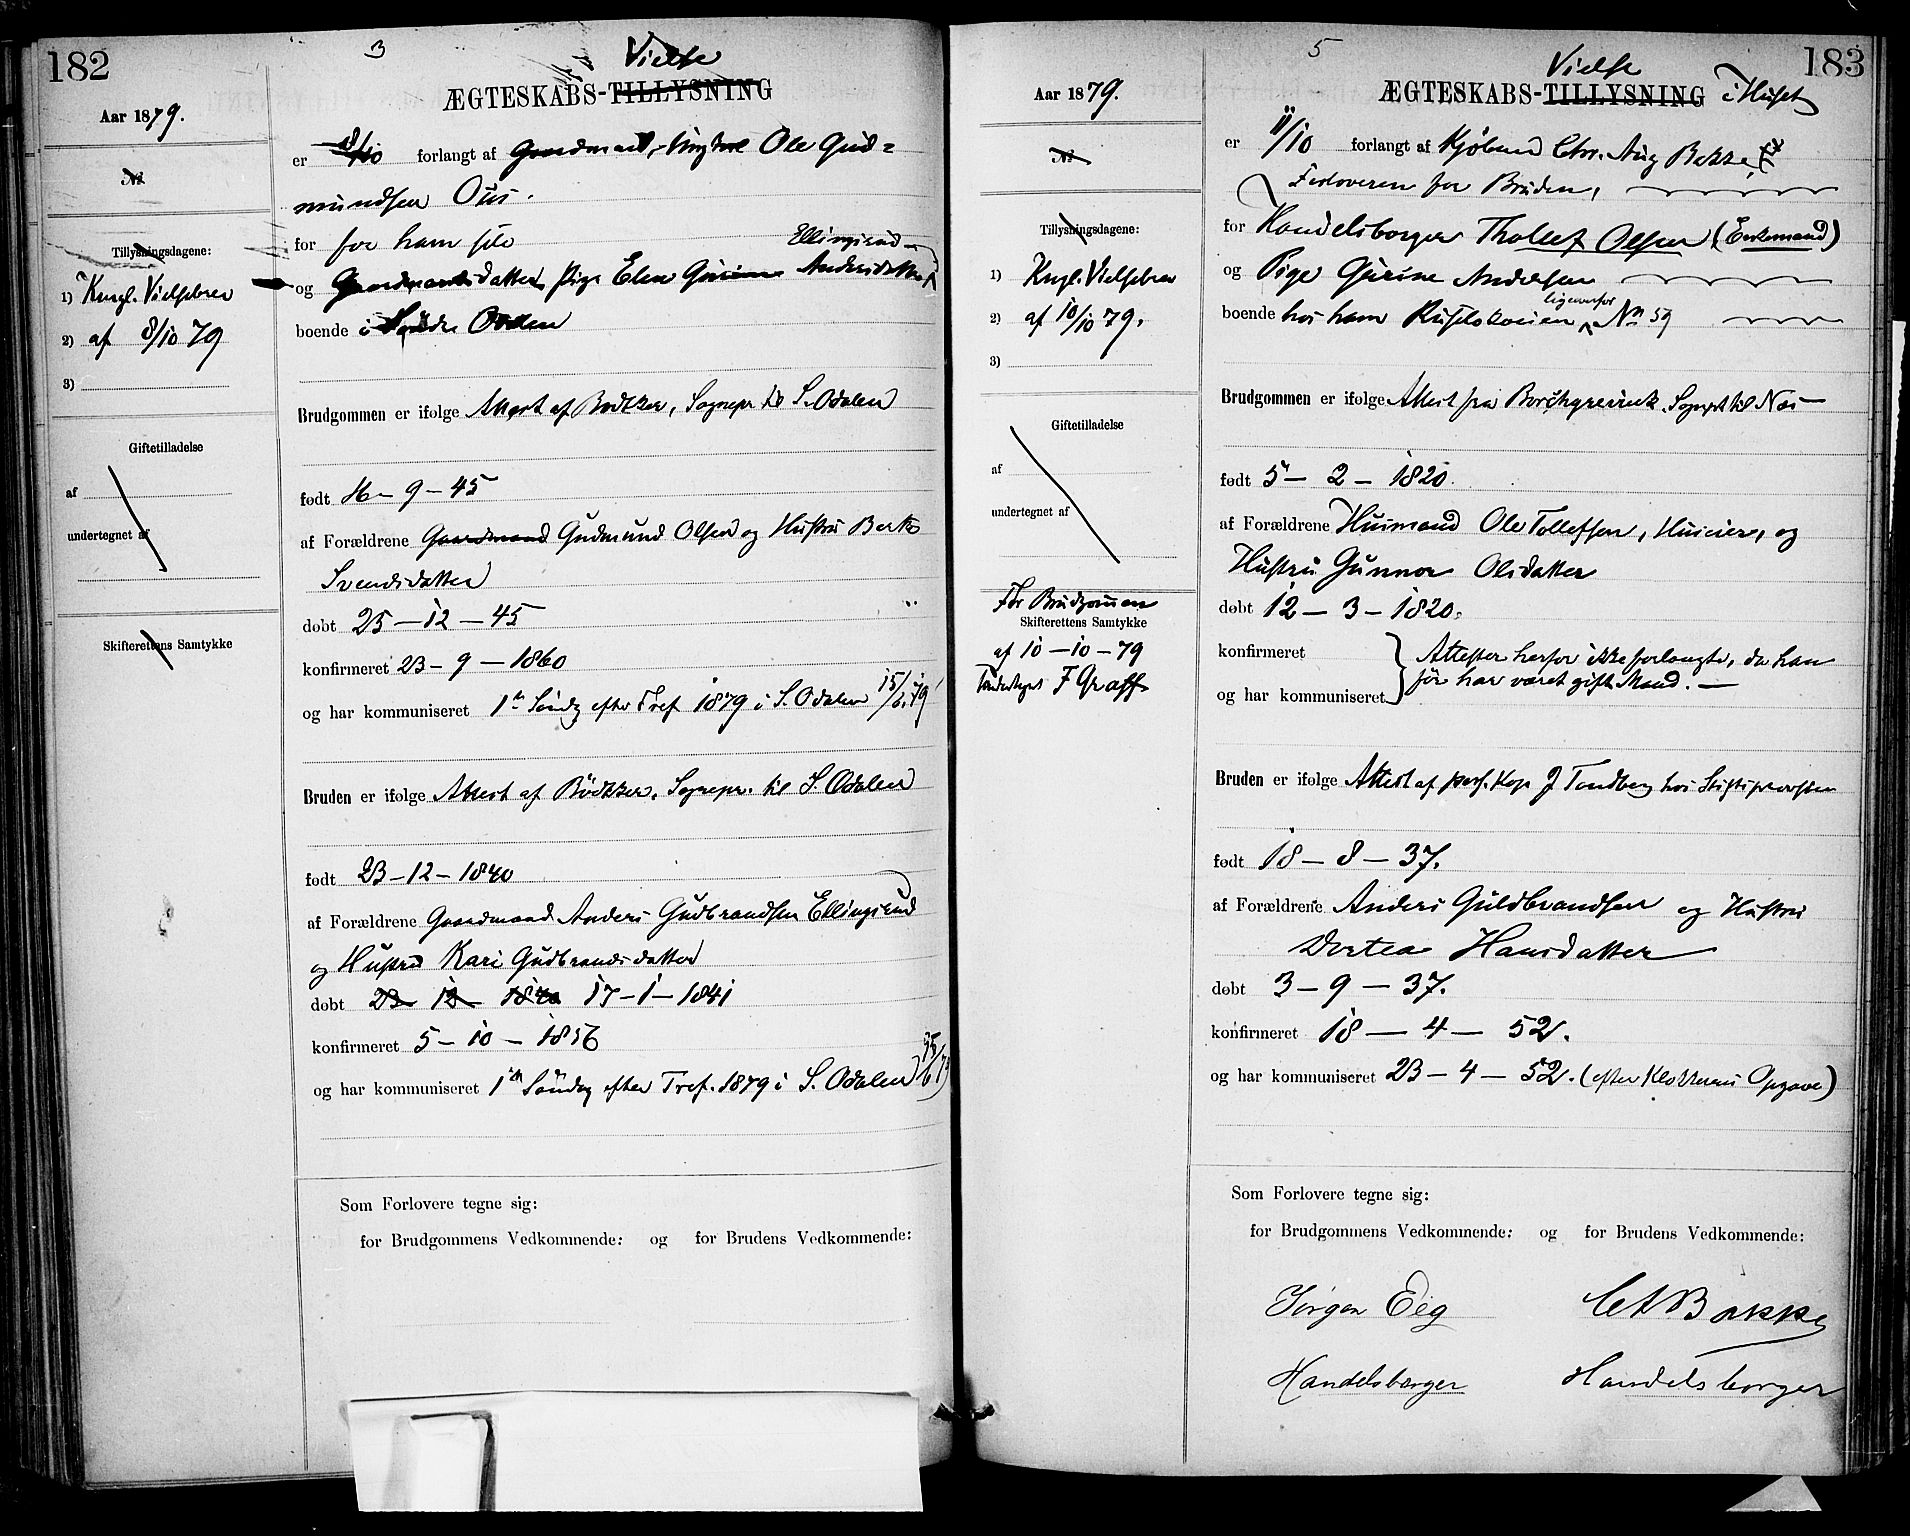 182
3
Vielse
ÆGTESKABS-TILLYSNING
Aar 1879.
No
Tillysningsdagene:
1) Kngl. Vielsebrev
2) af 8/10 79
3)
Giftetilladelse
af
undertegnet af
Skifterettens Samtykke
er 8/10 forlangt af Gaardmand, Ole Gud=
mundsen Ous.
for for ham selv Ellingsrud
og Gaardmandsdatter, Pige Elen Gurine Andersdatter
boende i Søndre Odalen
Brudgommen er ifølge Attest af Bødkker, Sognepr. til S. Odalen
født 16 - 9 - 45
af Forældrene Gaardmand Gudmund Olsen og Hustru Berte
Svendsdatter
døbt 25 - 12 - 45
konfirmeret 23 - 9 - 1860
og har kommuniseret 1ste Søndag efter Tref 1879 i S. Odalen 15/6.79
Bruden er ifølge Attest af Bödkker, Sognepr. til S. Odalen
født 23 - 12 - 1840
af Forældrene Gaardmand Anders Gudbrandsen Ellingsrud
og Hustru Kari Gudbrandsdatter
døbt 23 12 1840 17 - 1 - 1841
konfirmeret 5 - 10 - 1856
og har kommuniseret 1ste Søndag efter Tref. 1879 i S. Odalen 15/6 79
Som Forlovere tegne sig:
for Brudgommens Vedkommende: og for Brudens Vedkommende:
183
5
Vielse
ÆGTESKABS-TILLYSNING i Huset
Aar 1879.
No
Tillysningsdagene:
1) Kngl. Vielsebrev
2) af 10/10 79.
3)
Giftetilladelse
af
undertegnet af
For Brudgommen
Skifterettens Samtykke
af 10 - 10 - 79
Undertegnet F Graff
er 11/10 forlangt af Kjøbmd Chr. Aug Bakke,
Forloveren for Bruden,
for Handelsborger Thollef Olsen (Enkemand)
og Pige Gurine Andersen
boende hos ham ligeoverfor No 59
Brudgommen er ifølge Attest fra Borchgrevink. Sognepst til Næs
født 5 - 2 - 1820.
af Forældrene Husmand Ole Tollefsen, Huseier, og
Hustru Gunnor Olsdatter
døbt 12 - 3 - 1820.
konfirmeret } Attester herfor ikke forlangte, da han
og har kommuniseret før har været gift Mand.
Bruden er ifølge Attest af pers. Kap J Tandberg hos Stiftsprovsten
født 18 - 8 - 37.
af Forældrene Anders Guldbrandsen og Hustru
Dortea Hansdatter
døbt 3 - 9 - 37.
konfirmeret 18 - 4 - 52.
og har kommuniseret 23 - 4 - 52. (efter Klokkerens Opgave)
Som Forlovere tegne sig:
for Brudgommens Vedkommende: og for Brudens Vedkommende:
Jørgen Eeg CABakke
Handelsborger Handelsborger